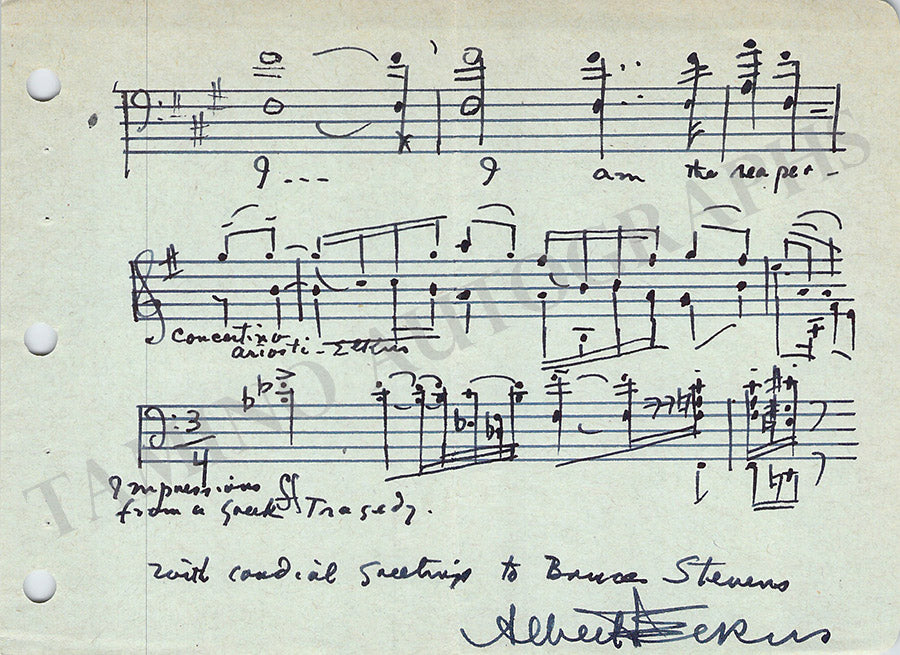 I... I am the reaper -
Concertino
ariosti - Elkus
3
4
Impressions ff
from a Greek Tragedy.
with cordial greetings to Bruce Stevens
Albert Elkus
TAMINO AUTOGRAPHS